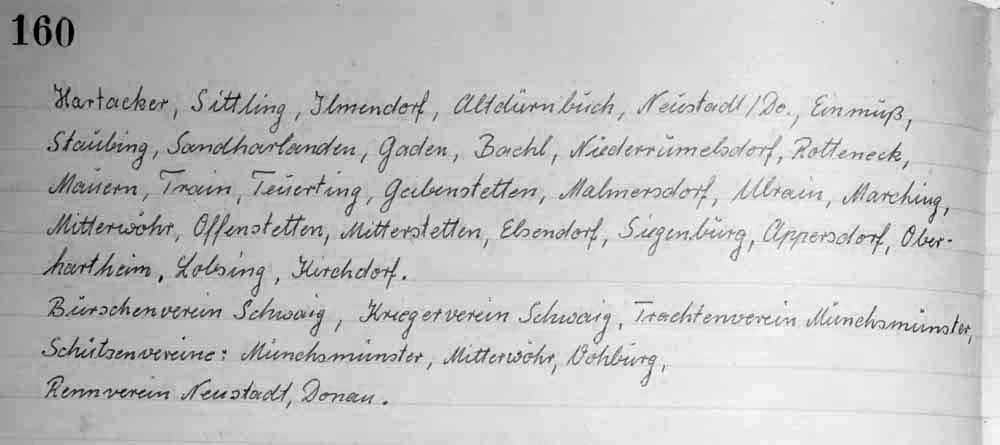 160
Hartacker, Sittling, Ilmendorf, Altdürnbuch, Neustadt/Do., Einmuß,
Staubing, Sandharlanden, Gaden, Bachl, Niederrumelsdorf, Rotteneck,
Mauern, Train, Teuerting, Geibenstetten, Malmersdorf, Ulrain, Marching,
Mitterwöhr, Offenstetten, Mitterstetten, Elsendorf, Siegenburg, Appersdorf, Ober-
hartheim, Lobsing, Kirchdorf.
Burschenverein Schwaig, Kriegerverein Schwaig, Trachtenverein Münchsmünster,
Schützenvereine: Münchsmünster, Mitterwöhr, Vohburg,
Rennverein Neustadt, Donau.